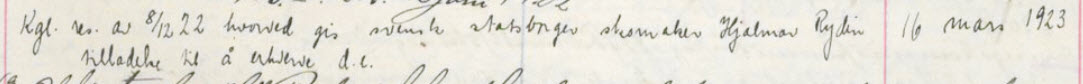 Kgl. res. av 8/12 22 hvorved gis svensk statsborger skomaker Hjalmar Rydin 16 mars 1923
tilladelse til å erhverve d.e.